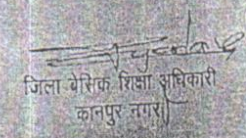 जिला बेसिक शिक्षा अधिकारी
कानपुर नगर।